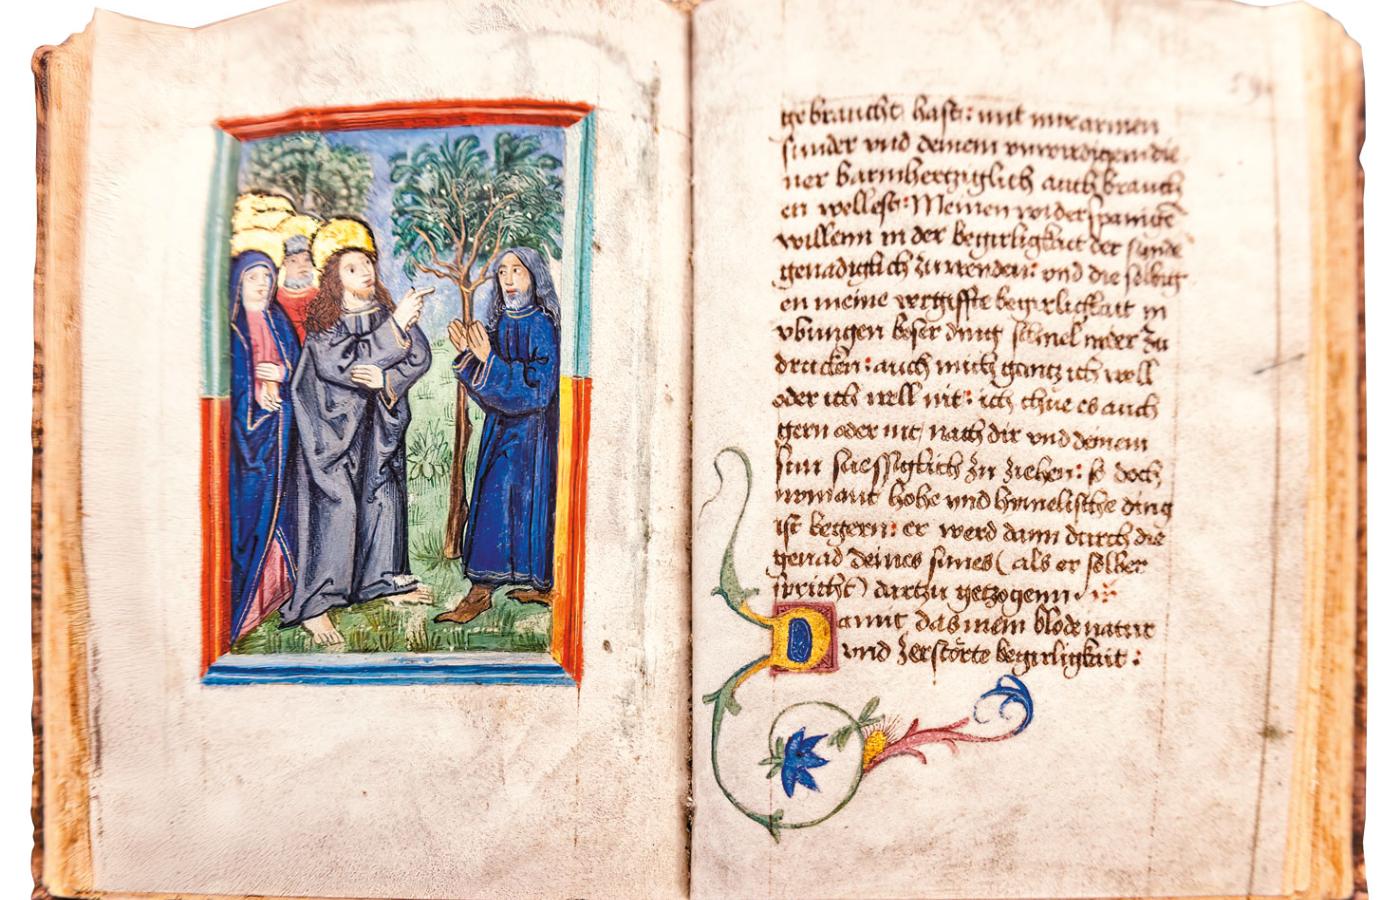 gebraucht hast: mit mir armen
sunder vnd deinem vnwirdigem die
ner barmhertziglich auch brauch
en wellest: Meinen widerspanigen
willenn in der begirligkait der sunde
genadigklich zu wenden: vnd die selbig
en meine vergiffte begirligkait in
vbungen boser ding schnel nider zu
drucken: auch mitz gantz ich woll
oder ich well nit: ich thue es auch
gern oder nit, nach dir vnd deinem
sun suessigklich zu ziehen: so doch
niemant hohe vnd himelische ding
ist begern: er werd dann durch die
genad deines sunes (als er selber
spricht) dartzu getzogenn:
Damit das mein blode natur
vnd zerstörte begirligkait: